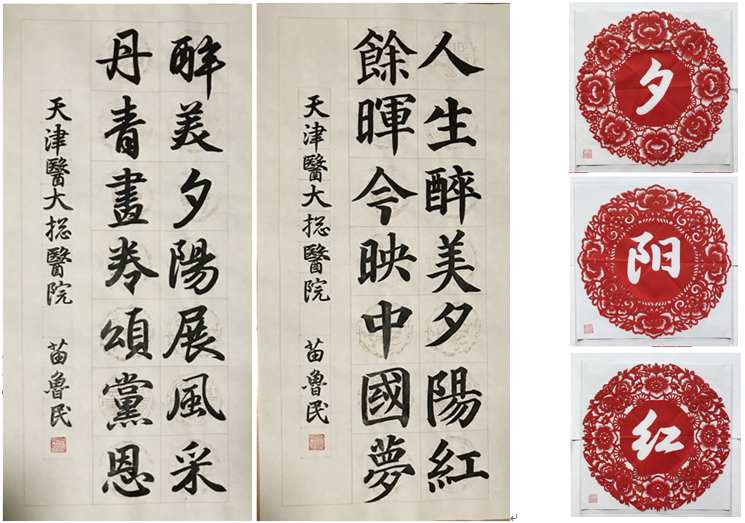 醉美夕陽展風采
丹青畫卷頌黨恩
天津醫大總醫院 苗魯民
人生醉美夕陽紅
餘暉今映中國夢
天津醫大總醫院 苗魯民
夕
阳
红